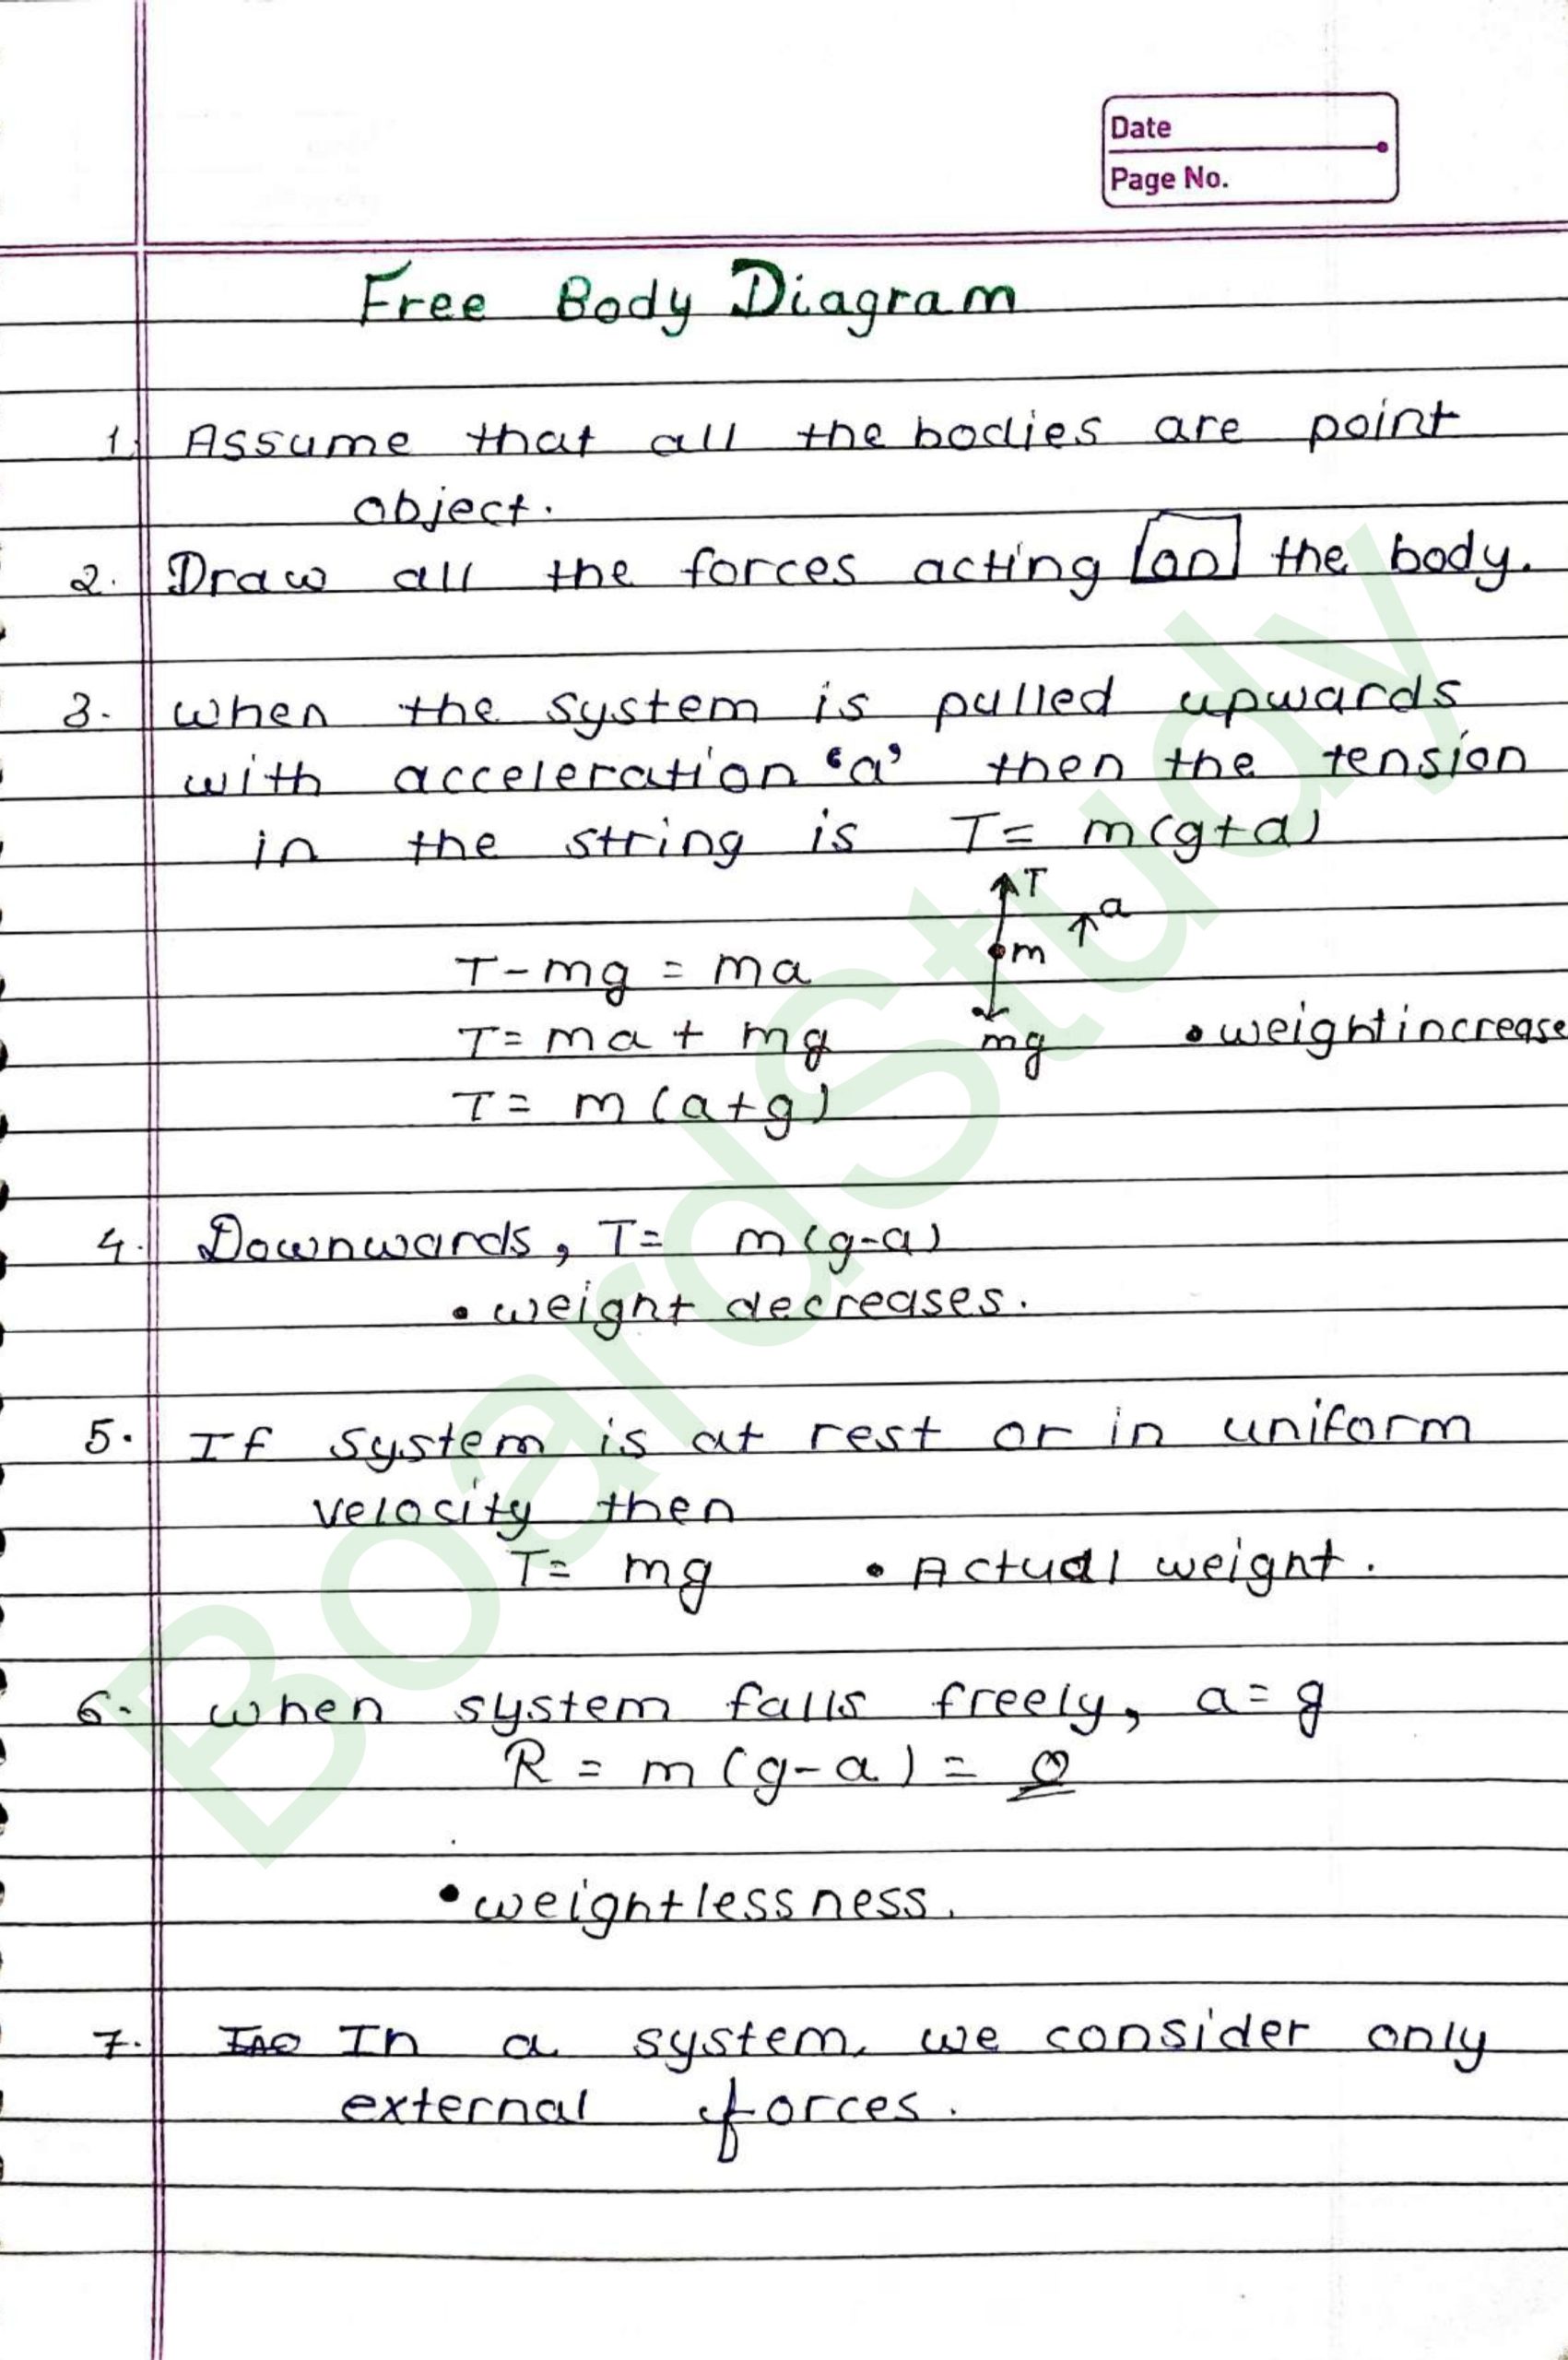 Date
Page No.
Free Body Diagram
1. Assume that all the bodies are point
object.
2. Draw all the forces acting on the body.
3. when the system is pulled upwards
with acceleration 'a' then the tension
in the string is T= m(g+a)
T
a
T-mg = ma
m
T= ma + mg
mg
• weight increase
T= m(a+g)
4. Downwards, T= m(g-a)
• weight decreases.
5. If system is at rest or in uniform
velocity then
T= mg • Actual weight.
6. when system falls freely, a=g
R = m(g-a) = 0
• weightlessness.
7. In a system, we consider only
external forces.
BoardStudy